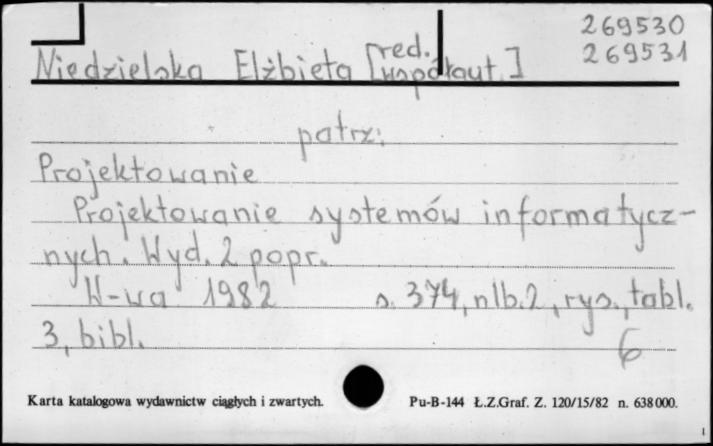 269530
269531
Niedzielska Elżbieta [red. współaut.]
patrz:
Projektowanie
Projektowanie systemów informatycz-
nych. Wyd. 2 popr.
W-wa 1982 s. 374, nlb. 2, rys., tabl.
3, bibl.
6
Karta katalogowa wydawnictw ciągłych i zwartych. Pu-B-144 Ł.Z.Graf. Z. 120/15/82 n. 638000.
1